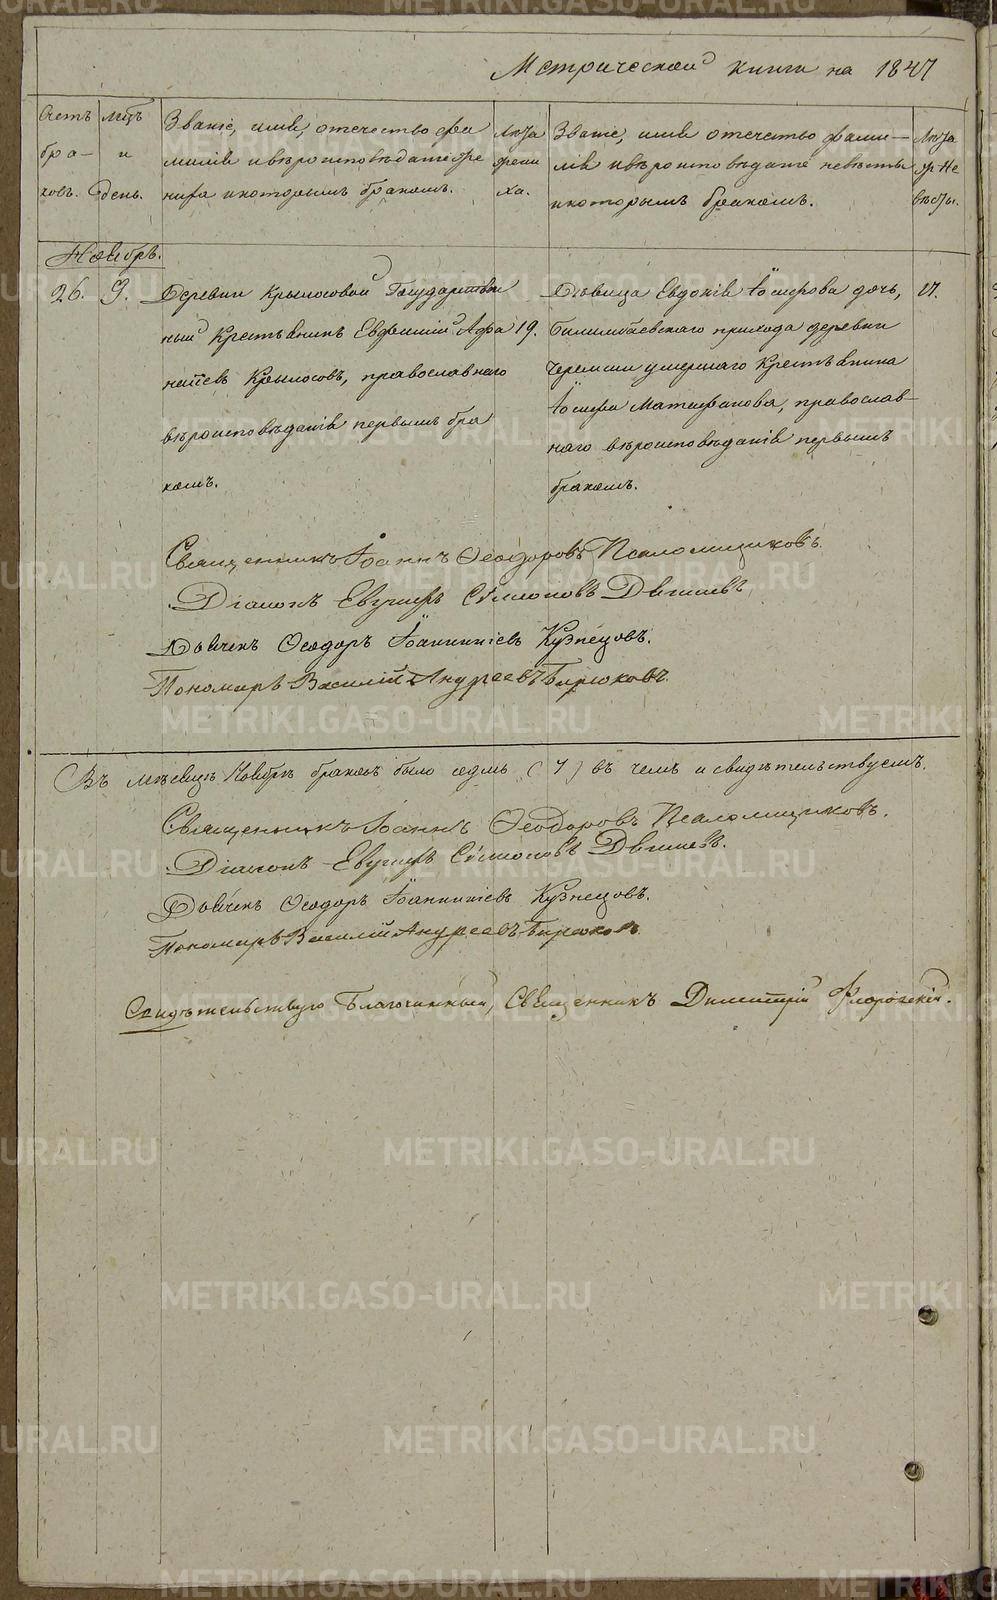 Метрической книги на 1847
Счетъ бра- ковъ.
Мцъ и день.
Званіе, имя, отечество фа
милія и вѣроисповѣданіе же
ниха и которымъ бракомъ.
Лѣта жени ха.
Званіе, имя, отечество фами-
лія и вѣроисповѣданіе невѣсты
и которымъ бракомъ.
Лѣта не вѣсты.
Ноябрь.
26.
9.
Деревни Крылосовой Государствен
ный Крестьянинъ Евфимій Афа
насіевъ Крылосовъ, православнаго
вѣроисповѣданія первымъ бра
комъ.
19.
Дѣвица Евдокія Іосифова дочь,
Билимбаевскаго прихода деревни
Черемши умершаго Крестьянина
Іосифа Матафонова, православ-
наго вѣроисповѣданія первымъ
бракомъ.
17.
Священникъ Іоаннъ Ѳеодоровъ Псаломщиковъ.
Діаконъ Евгенъ Сѵмеоновъ
Дьячекъ Ѳеодоръ Іоанникіевъ Кузнецовъ.
Пономарь Василій Андреевъ Бирюковъ.
Въ мѣсяцѣ Ноябрѣ браковъ было седмь (7) въ чемъ и свидѣтельствуемъ.
Священникъ Іоаннъ Ѳеодоровъ Псаломщиковъ.
Діаконъ Евгенъ Сѵмеоновъ
Дьячекъ Ѳеодоръ Іоанникіевъ Кузнецовъ.
Пономарь Василій Андреевъ Бирюковъ
Свидѣтельствую Благочинный, Священникъ Димитрій Флоровскій.
METRIKI.GASO-URAL.RU